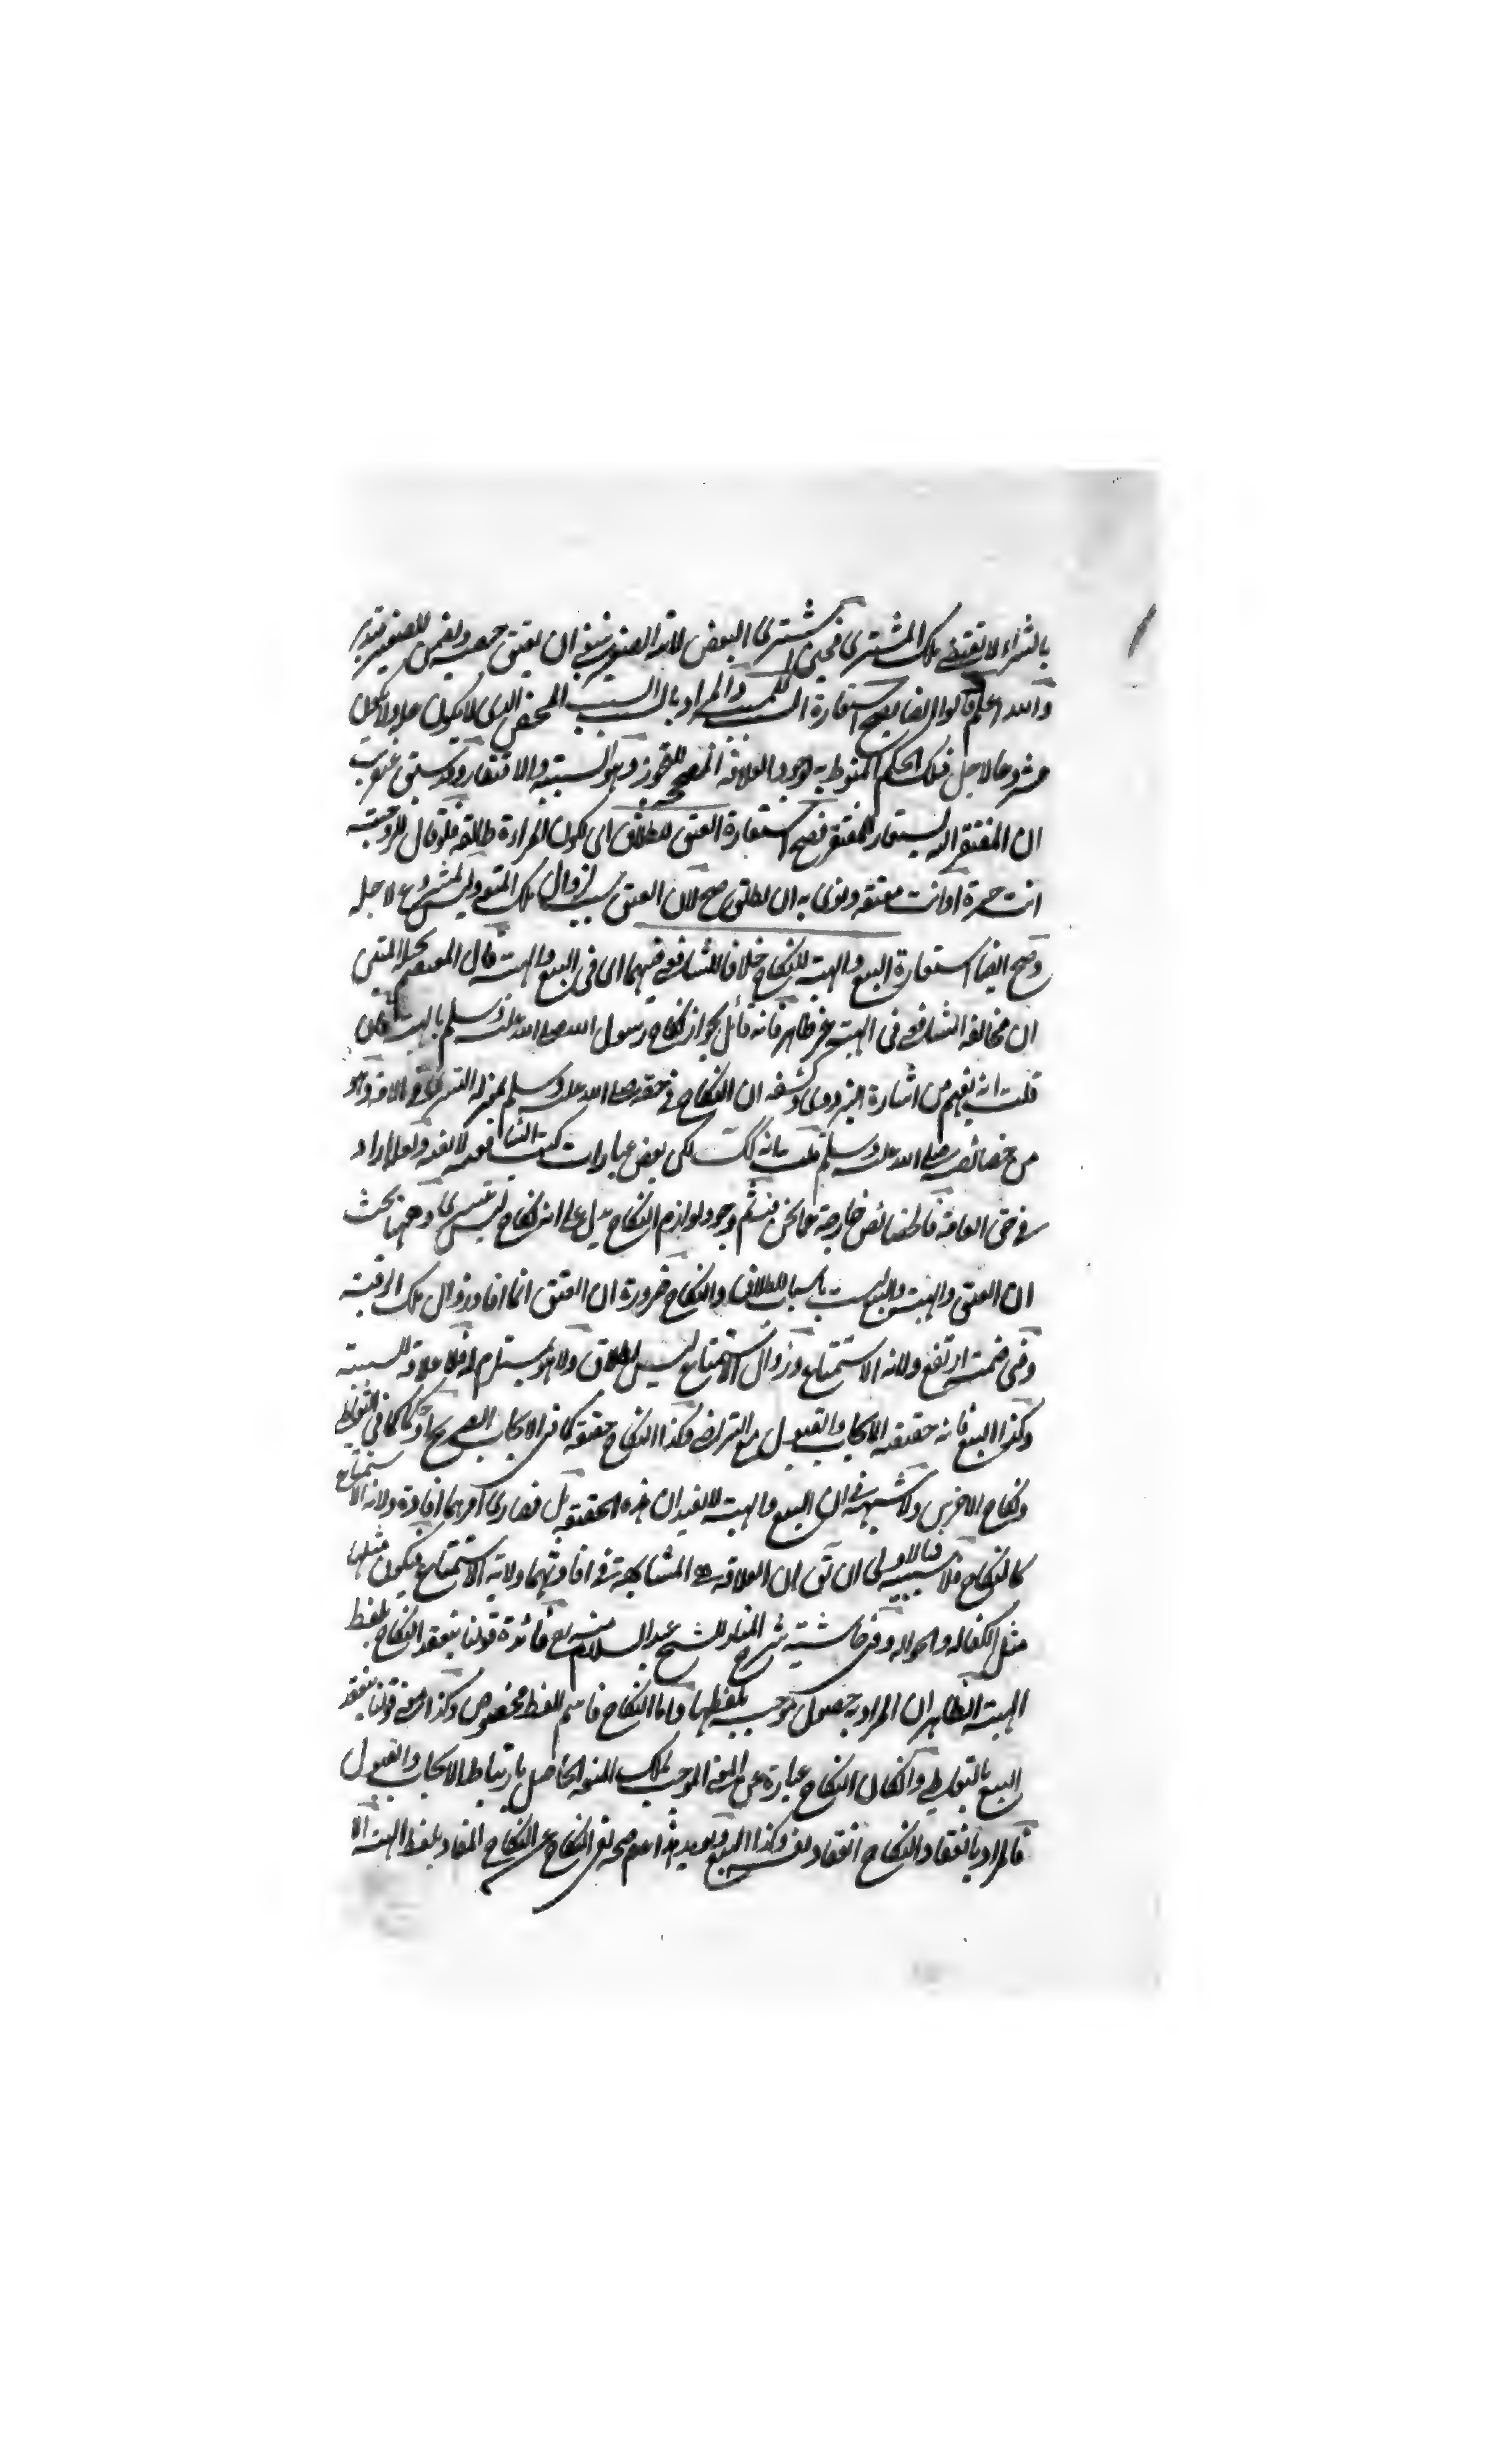 بالشراء لا تقتضي ملك المشتري فحين اشترى البعض لا بد الصغير ينبغي ان يعتق جميعه ويضمن للصغير فتدبر
والله اعلم قالوا ايضا يصح استعارة السبب للمسبب والمراد بالسبب السبب المحض الذي لا يكون علة ولا يكون
مشروعا لاجل ذلك الحكم المنوط به لوجود العلاقة المصححة للتجوز وهو السببية والافتقار وقد سبق عنقريب
ان المفتقر اليه يستعار للمفتقر فيصح استعارة العتق للطلاق اي يكون المراد طالقة فلو قال لزوجته
انت حرة او انت معتقة ونوى به ان يطلق صح لان العتق سبب لزوال ملك المتعة وليس مشروع لاجله
وصح ايضا استعارة البيع والهبة للنكاح خلافا للشافعي فيهما اي في البيع والهبة قال المعتصم بحبله المتين
ان مخالفة الشافعي في الهبة غير ظاهر فانه قائل بجواز نكاح رسول الله صلى الله عليه وسلم بالهبة فان
قلت انه يفهم من اشارة البزدوي وكشفه ان النكاح في حقه صلى الله عليه وسلم بمنزلة التسري في الامة وهو
من خصائصه صلى الله عليه وسلم قلت كتب الشافعية لا تفيده ولعله اراد
في حق العامة فالخصائص خارجة عما نحن فيه ثم وجود لوازم النكاح يدل على انه نكاح ليس بتسري وههنا بحث
ان العتق والهبة والبيع ليست باسباب للطلاق والنكاح ضرورة ان العتق انما افاد زوال ملك الرقبة
وفي ضمنه ارتفع ولاية الاستمتاع وزوال الاستمتاع ليس بطلاق ولا هو يستلزم له فلا علاقة للسببية
وكذا البيع فانه حقيقة الايجاب والقبول مع التراضي وكذا النكاح حقيقة كما في الايجاب الصريح او حكما كما في التعاطي
ونكاح الاخرس ولا شبهة في ان البيع والهبة لا يفيدان هذه الحقيقة بل قصارى امرهما افادة ولاية الاستمتاع
كالنكاح فلا سببية فالاولى ان يق ان العلاقة هي المشابهة في افادتهما ولاية الاستمتاع فيكون مثلها
مثل الكفالة والحوالة وفي حاشية شرح المنار للشيخ عبد السلام فائدة قولنا ينعقد النكاح بلفظ
الهبة الظاهر ان المراد به حصول موجبه بلفظها واما النكاح فاسم للفظ مخصوص وكذا معنى قولنا ينعقد
البيع بالتعاطي وان كان النكاح عبارة عن المعنى الموجب لملك المتعة الحاصل بارتباط الايجاب والقبول
فالمراد بانعقاد النكاح انعقاد نفسه وكذا البيع ويؤيد هذا عدم صحة نفي النكاح عن النكاح المفاد بلفظ الهبة الا